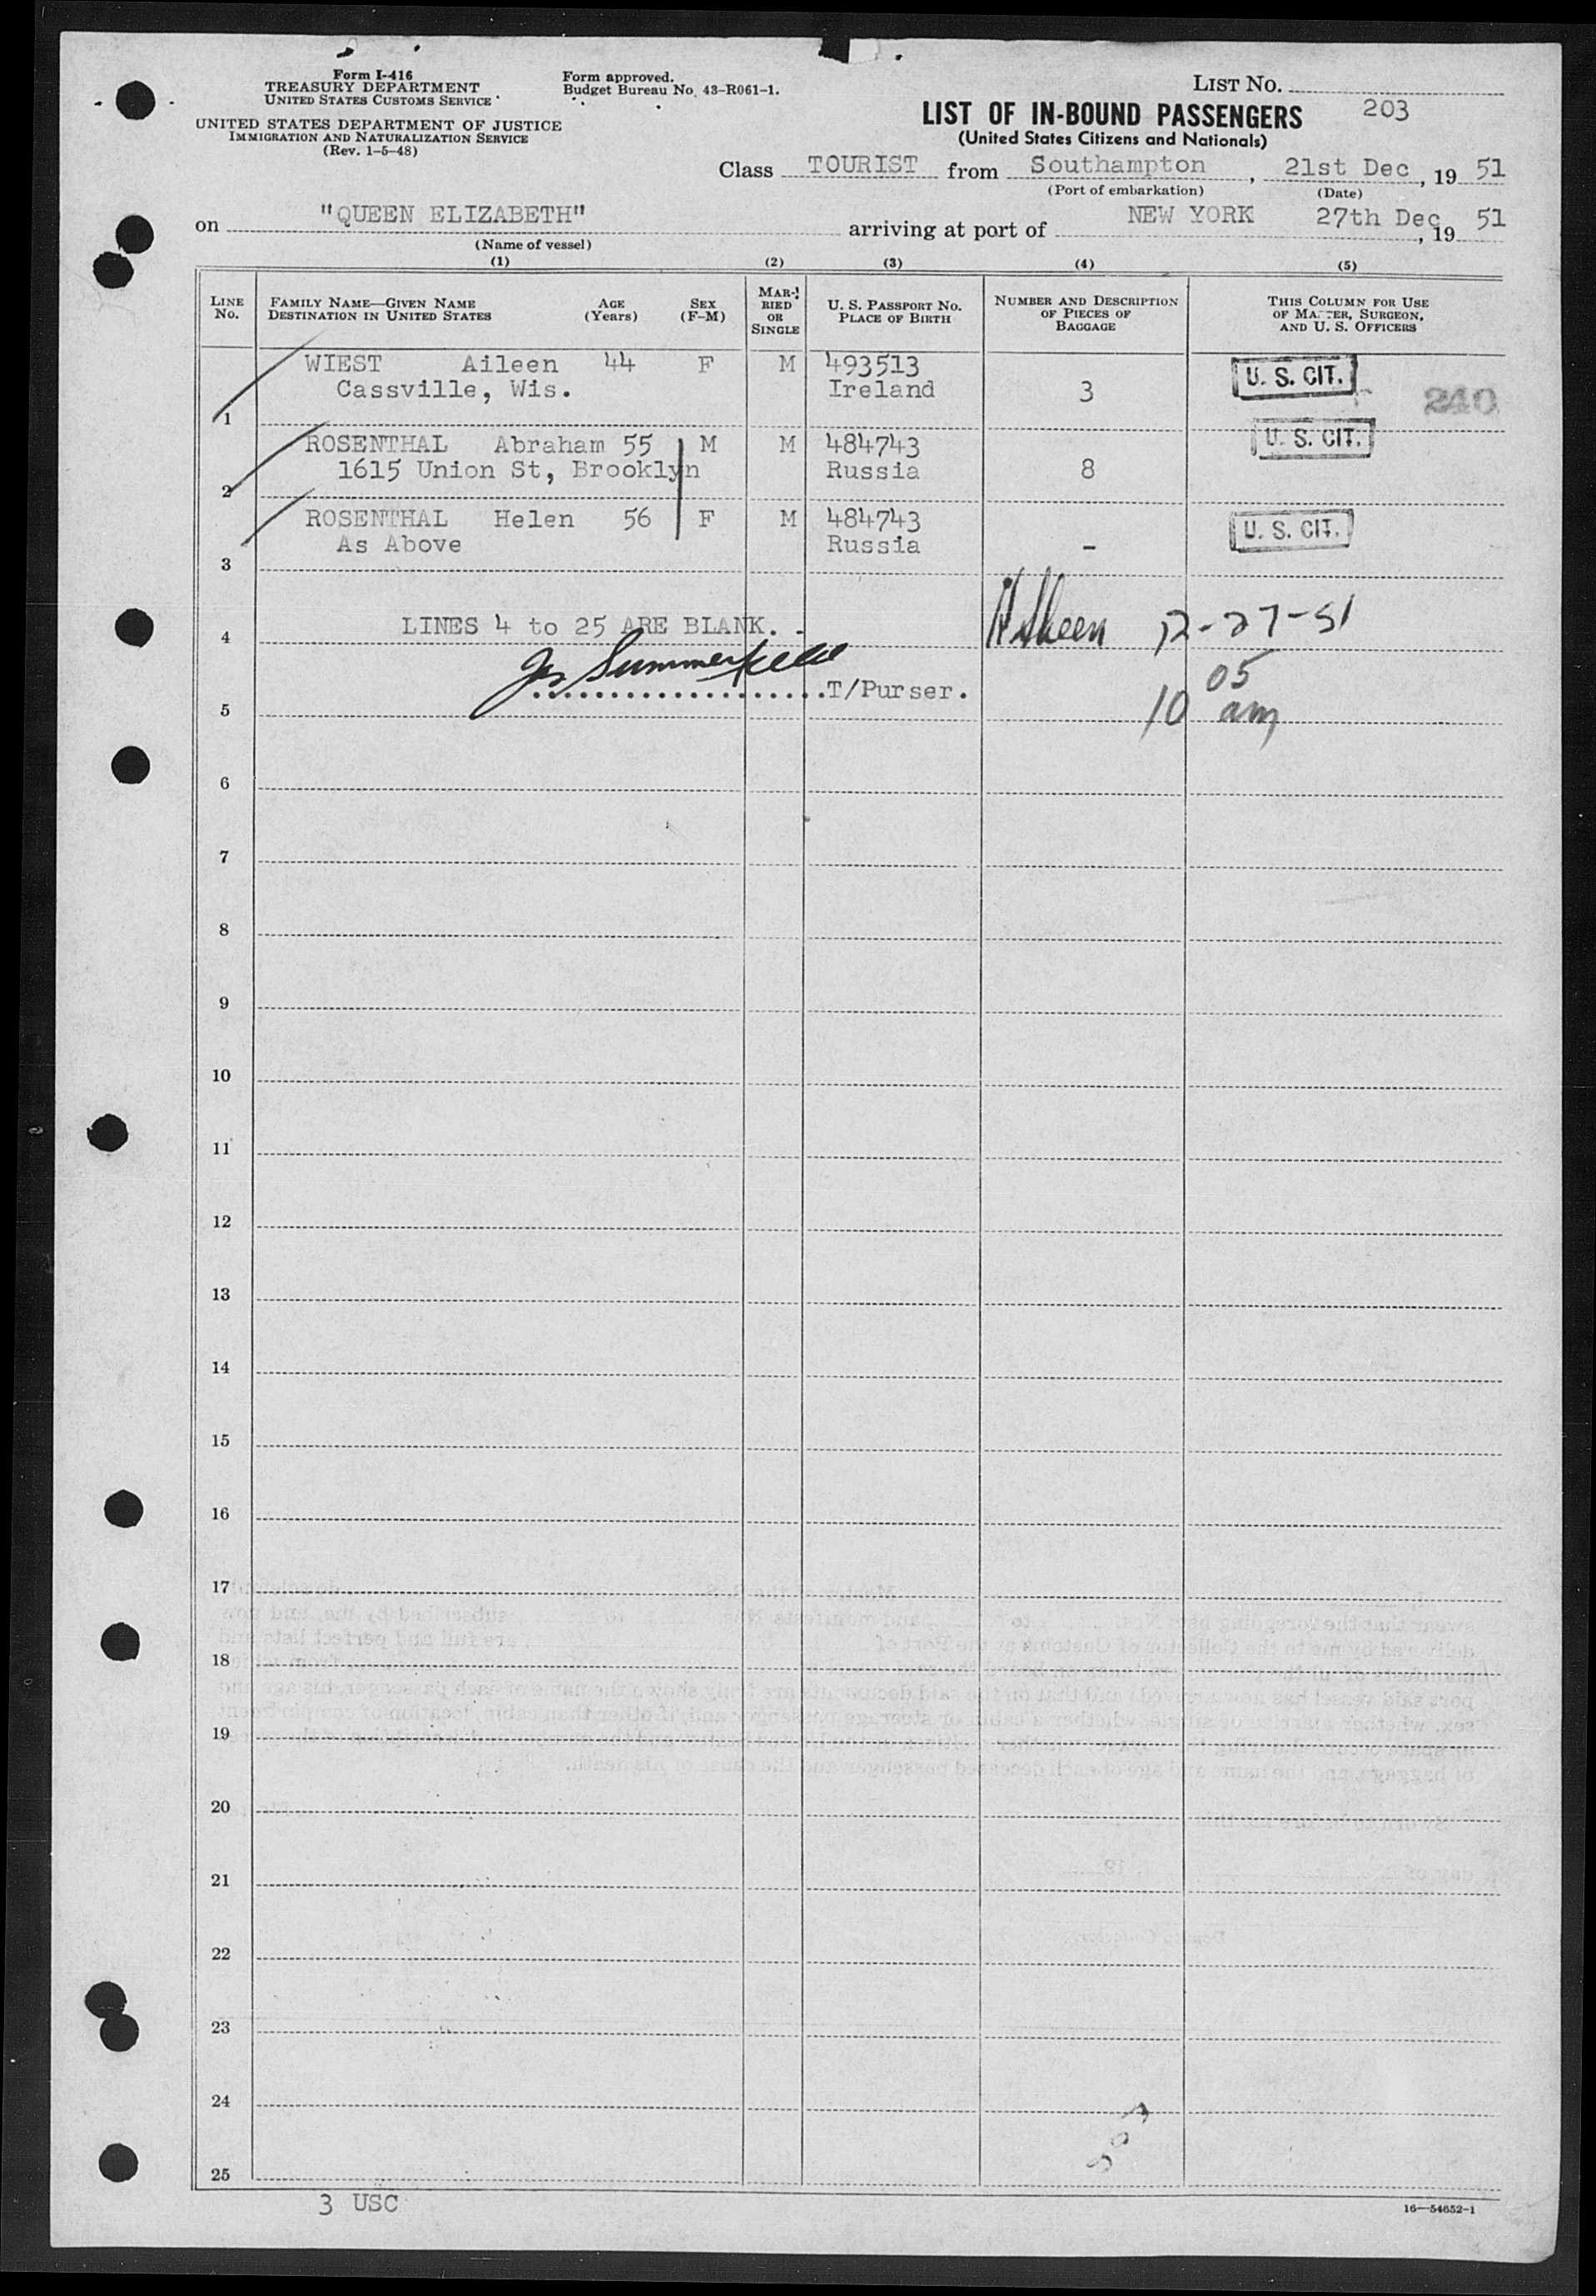 Form I-416
TREASURY DEPARTMENT
UNITED STATES CUSTOMS SERVICE
UNITED STATES DEPARTMENT OF JUSTICE
IMMIGRATION AND NATURALIZATION SERVICE
(Rev. 1-5-48)
Form approved.
Budget Bureau No. 43-R061-1.
LIST No.
203
LIST OF IN-BOUND PASSENGERS
(United States Citizens and Nationals)
Class TOURIST from Southampton, 21st Dec, 19 51
(Port of embarkation) (Date)
on "QUEEN ELIZABETH" arriving at port of NEW YORK 27th Dec, 19 51
(Name of vessel)
(1) (2) (3) (4) (5)
LINE No. FAMILY NAME—GIVEN NAME DESTINATION IN UNITED STATES AGE (Years) SEX (F-M) MARRIED OR SINGLE U. S. PASSPORT No. PLACE OF BIRTH NUMBER AND DESCRIPTION OF PIECES OF BAGGAGE THIS COLUMN FOR USE OF MASTER, SURGEON, AND U. S. OFFICERS
WIEST Aileen 44 F M 493513 U. S. CIT.
Cassville, Wis. Ireland 3 240
1
ROSENTHAL Abraham 55 M M 484743 U. S. CIT.
1615 Union St, Brooklyn Russia 8
2
ROSENTHAL Helen 56 F M 484743 U. S. CIT.
As Above Russia -
3
LINES 4 to 25 ARE BLANK. 12-27-51
4
Summerfield 05
T/Purser. 10 am
5
6
7
8
9
10
11
12
13
14
15
16
17
18
19
20
21
22
23
24
25
3 USC
16—54652-1